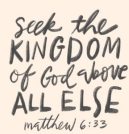 Seek the
KINGDOM
of God above
ALL ELSE
matthew 6:33